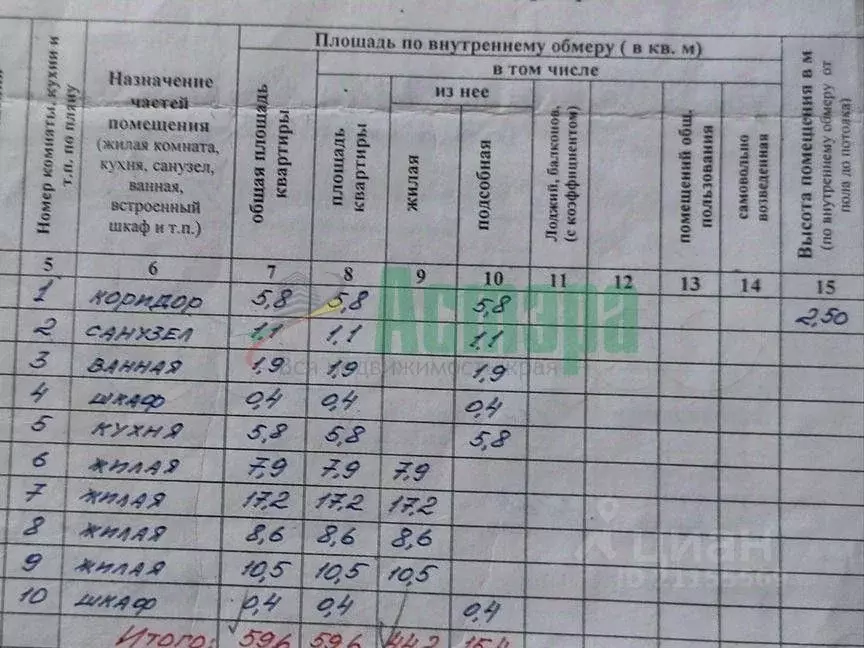 Площадь по внутреннему обмеру ( в кв. м)
в том числе
из нее
Номер комнаты, кухни и
т.п. по плану
Назначение
частей
помещения
(жилая комната,
кухня, санузел,
ванная,
встроенный
шкаф и т.п.)
общая площадь
квартиры
площадь
квартиры
жилая
подсобная
Лоджий, балконов,
(с коэффициентом)
помещений общ.
пользования
самовольно
возведенная
Высота помещения в м
(по внутреннему обмеру от
пола до потолка)
5 6 7 8 9 10 11 12 13 14 15
1 коридор 5,8 5,8 5,8 2,50
2 санузел 1,1 1,1 1,1
3 ванная 1,9 1,9 1,9
4 шкаф 0,4 0,4 0,4
5 кухня 5,8 5,8 5,8
6 жилая 7,9 7,9 7,9
7 жилая 17,2 17,2 17,2
8 жилая 8,6 8,6 8,6
9 жилая 10,5 10,5 10,5
10 шкаф 0,4 0,4 0,4
Итого: 59,6 59,6 44,2 15,4
Астэра
Вся недвижимость края
Циан